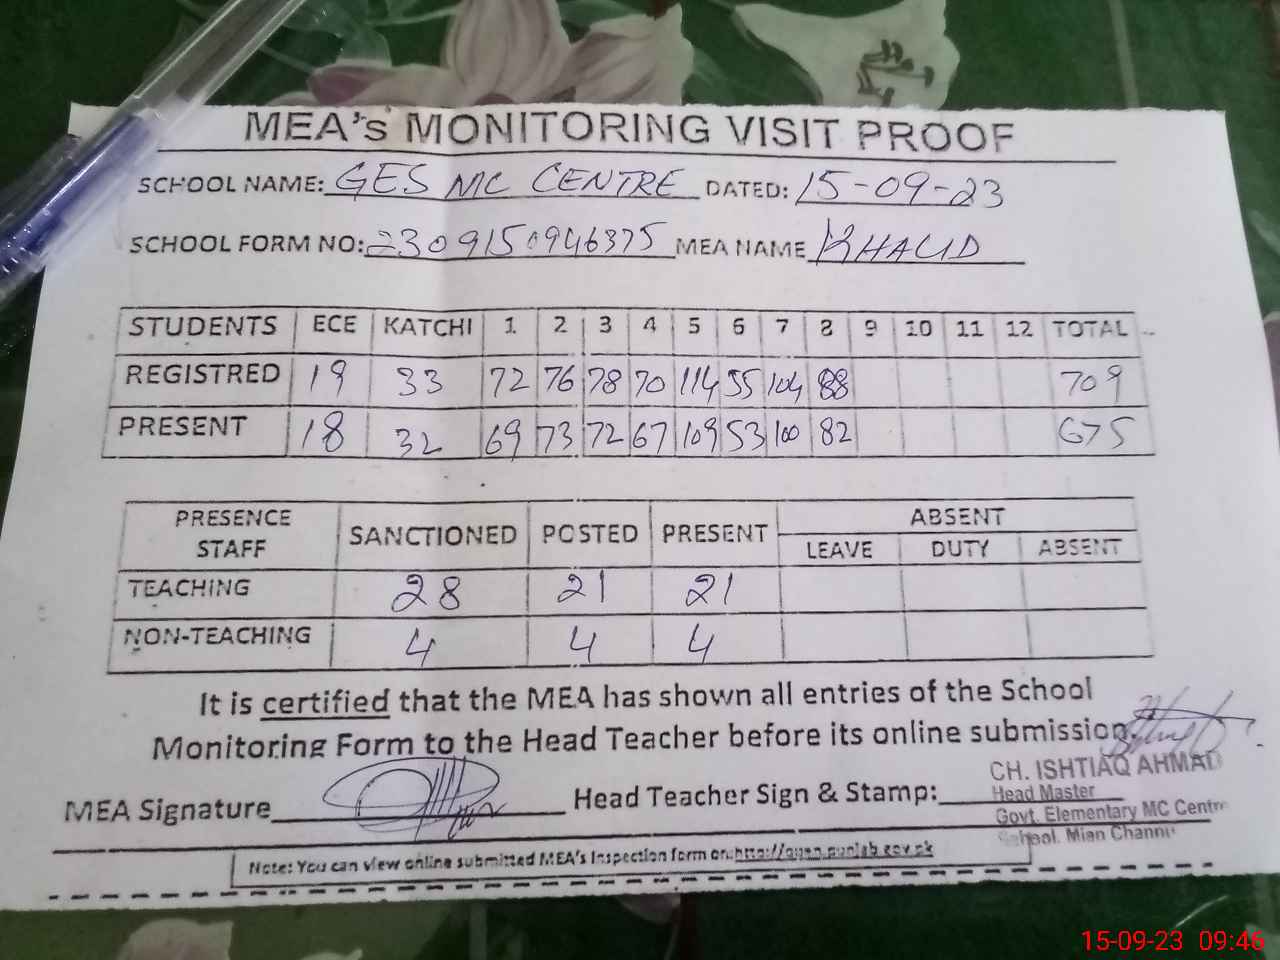 MEA's MONITORING VISIT PROOF
SCHOOL NAME: GES MC CENTRE DATED: 15-09-23
SCHOOL FORM NO: 2309150946375 MEA NAME KHALID
STUDENTS ECE KATCHI 1 2 3 4 5 6 7 8 9 10 11 12 TOTAL
REGISTRED 19 33 72 76 78 70 114 55 104 88 709
PRESENT 18 32 69 73 72 67 109 53 100 82 675
PRESENCE STAFF SANCTIONED POSTED PRESENT ABSENT
LEAVE DUTY ABSENT
TEACHING 28 21 21
NON-TEACHING 4 4 4
It is certified that the MEA has shown all entries of the School
Monitoring Form to the Head Teacher before its online submission
MEA Signature Head Teacher Sign & Stamp:
CH. ISHTIAQ AHMAD
Head Master
Govt. Elementary MC Centre
School. Mian Channu
Note: You can view online submitted MEA's Inspection form on: http://open.punjab.gov.pk
15-09-23 09:46